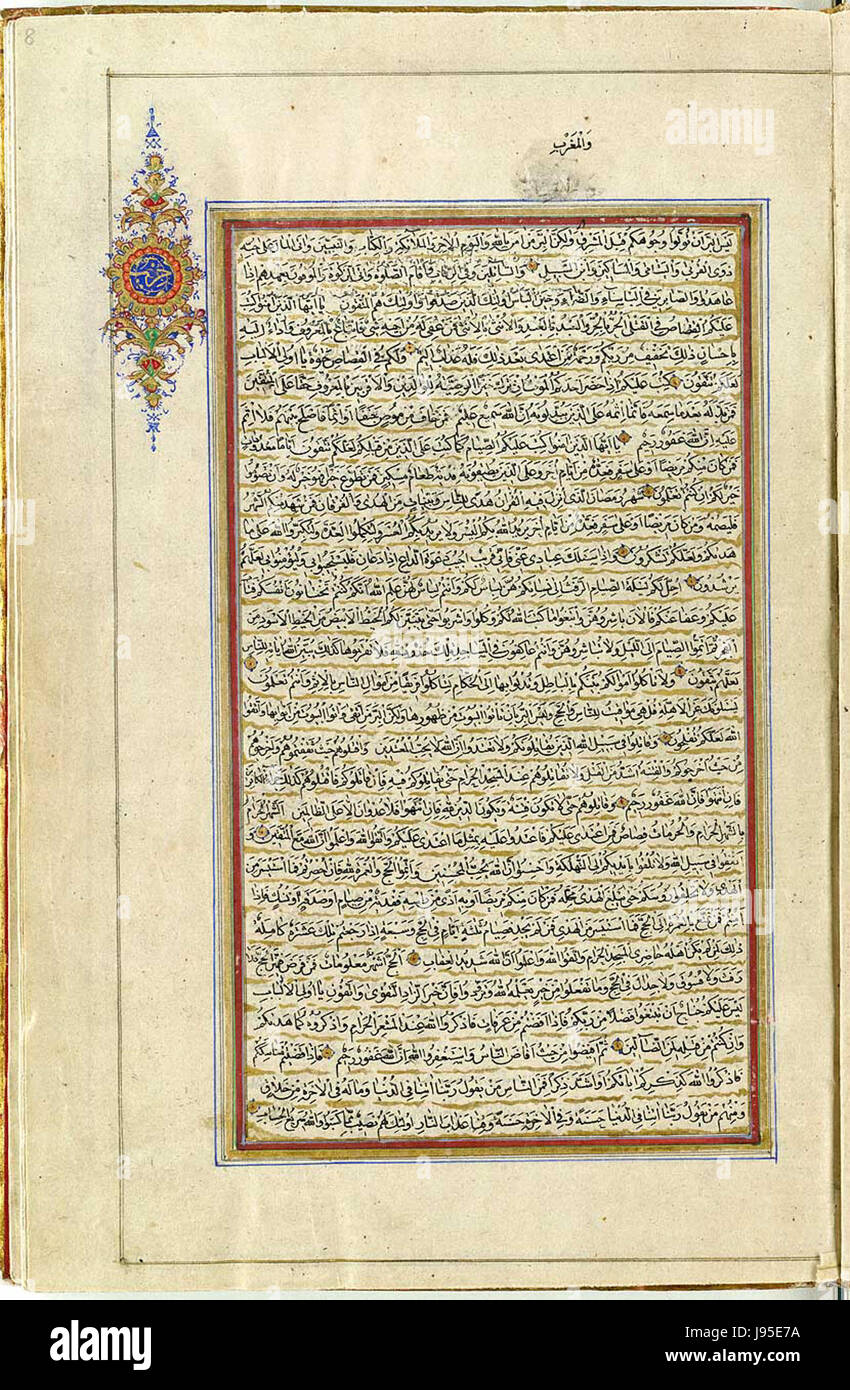 8
والمغرب
ليس البر ان تولوا وجوهكم قبل المشرق ولكن البر من امن بالله واليوم الاخر والملائكة والكتاب والنبيين واتى المال على حبه
ذوى القربى واليتامى والمساكين وابن السبيل والسائلين وفى الرقاب واقام الصلوة واتى الزكوة والموفون بعهدهم اذا
عاهدوا والصابرين فى الباساء والضراء وحين الباس اولئك الذين صدقوا واولئك هم المتقون يا ايها الذين امنوا كتب
عليكم القصاص فى القتلى الحر بالحر والعبد بالعبد والانثى بالانثى فمن عفى له من اخيه شىء فاتباع بالمعروف واداء اليه
باحسان ذلك تخفيف من ربكم ورحمة فمن اعتدى بعد ذلك فله عذاب اليم ولكم فى القصاص حيوة يا اولى الالباب
لعلكم تتقون كتب عليكم اذا حضر احدكم الموت ان ترك خيرا الوصية للوالدين والاقربين بالمعروف حقا على المتقين
فمن بدله بعد ما سمعه فانما اثمه على الذين يبدلونه ان الله سميع عليم فمن خاف من موص جنفا او اثما فاصلح بينهم فلا اثم
عليه ان الله غفور رحيم يا ايها الذين امنوا كتب عليكم الصيام كما كتب على الذين من قبلكم لعلكم تتقون اياما معدودات
فمن كان منكم مريضا او على سفر فعدة من ايام اخر وعلى الذين يطيقونه فدية طعام مسكين فمن تطوع خيرا فهو خير له وان تصوموا
خير لكم ان كنتم تعلمون شهر رمضان الذى انزل فيه القران هدى للناس وبينات من الهدى والفرقان فمن شهد منكم الشهر
فليصمه ومن كان مريضا او على سفر فعدة من ايام اخر يريد الله بكم اليسر ولا يريد بكم العسر ولتكملوا العدة ولتكبروا الله على ما
هديكم ولعلكم تشكرون واذا سئلك عبادى عنى فانى قريب اجيب دعوة الداع اذا دعان فليستجيبوا لى وليؤمنوا بى لعلهم
يرشدون احل لكم ليلة الصيام الرفث الى نسائكم هن لباس لكم وانتم لباس لهن علم الله انكم كنتم تختانون انفسكم فتاب
عليكم وعفا عنكم فالان باشروهن وابتغوا ما كتب الله لكم وكلوا واشربوا حتى يتبين لكم الخيط الابيض من الخيط الاسود من
الفجر ثم اتموا الصيام الى الليل ولا تباشروهن وانتم عاكفون فى المساجد تلك حدود الله فلا تقربوها كذلك يبين الله اياته للناس
لعلهم يتقون ولا تاكلوا اموالكم بينكم بالباطل وتدلوا بها الى الحكام لتاكلوا فريقا من اموال الناس بالاثم وانتم تعلمون
يسئلونك عن الاهلة قل هى مواقيت للناس والحج وليس البر بان تاتوا البيوت من ظهورها ولكن البر من اتقى واتوا البيوت من ابوابها واتقوا
الله لعلكم تفلحون وقاتلوا فى سبيل الله الذين يقاتلونكم ولا تعتدوا ان الله لا يحب المعتدين واقتلوهم حيث ثقفتموهم واخرجوهم
من حيث اخرجوكم والفتنة اشد من القتل ولا تقاتلوهم عند المسجد الحرام حتى يقاتلوكم فيه فان قاتلوكم فاقتلوهم كذلك جزاء الكافرين
فان انتهوا فان الله غفور رحيم وقاتلوهم حتى لا تكون فتنة ويكون الدين لله فان انتهوا فلا عدوان الا على الظالمين الشهر الحرام
بالشهر الحرام والحرمات قصاص فمن اعتدى عليكم فاعتدوا عليه بمثل ما اعتدى عليكم واتقوا الله واعلموا ان الله مع المتقين و
انفقوا فى سبيل الله ولا تلقوا بايديكم الى التهلكة واحسنوا ان الله يحب المحسنين واتموا الحج والعمرة لله فان احصرتم فما استيسر من
الهدى ولا تحلقوا رؤسكم حتى يبلغ الهدى محله فمن كان منكم مريضا او به اذى من راسه ففدية من صيام او صدقة او نسك فاذا
امنتم فمن تمتع بالعمرة الى الحج فما استيسر من الهدى فمن لم يجد فصيام ثلثة ايام فى الحج وسبعة اذا رجعتم تلك عشرة كاملة
ذلك لمن لم يكن اهله حاضرى المسجد الحرام واتقوا الله واعلموا ان الله شديد العقاب الحج اشهر معلومات فمن فرض فيهن الحج فلا
رفث ولا فسوق ولا جدال فى الحج وما تفعلوا من خير يعلمه الله وتزودوا فان خير الزاد التقوى واتقون يا اولى الالباب
ليس عليكم جناح ان تبتغوا فضلا من ربكم فاذا افضتم من عرفات فاذكروا الله عند المشعر الحرام واذكروه كما هديكم
وان كنتم من قبله لمن الضالين ثم افيضوا من حيث افاض الناس واستغفروا الله ان الله غفور رحيم فاذا قضيتم مناسككم
فاذكروا الله كذكركم اباءكم او اشد ذكرا فمن الناس من يقول ربنا اتنا فى الدنيا وما له فى الاخرة من خلاق
ومنهم من يقول ربنا اتنا فى الدنيا حسنة وفى الاخرة حسنة وقنا عذاب النار اولئك لهم نصيب مما كسبوا والله سريع الحساب
alamy
alamy
Image ID: J95E7A
www.alamy.com